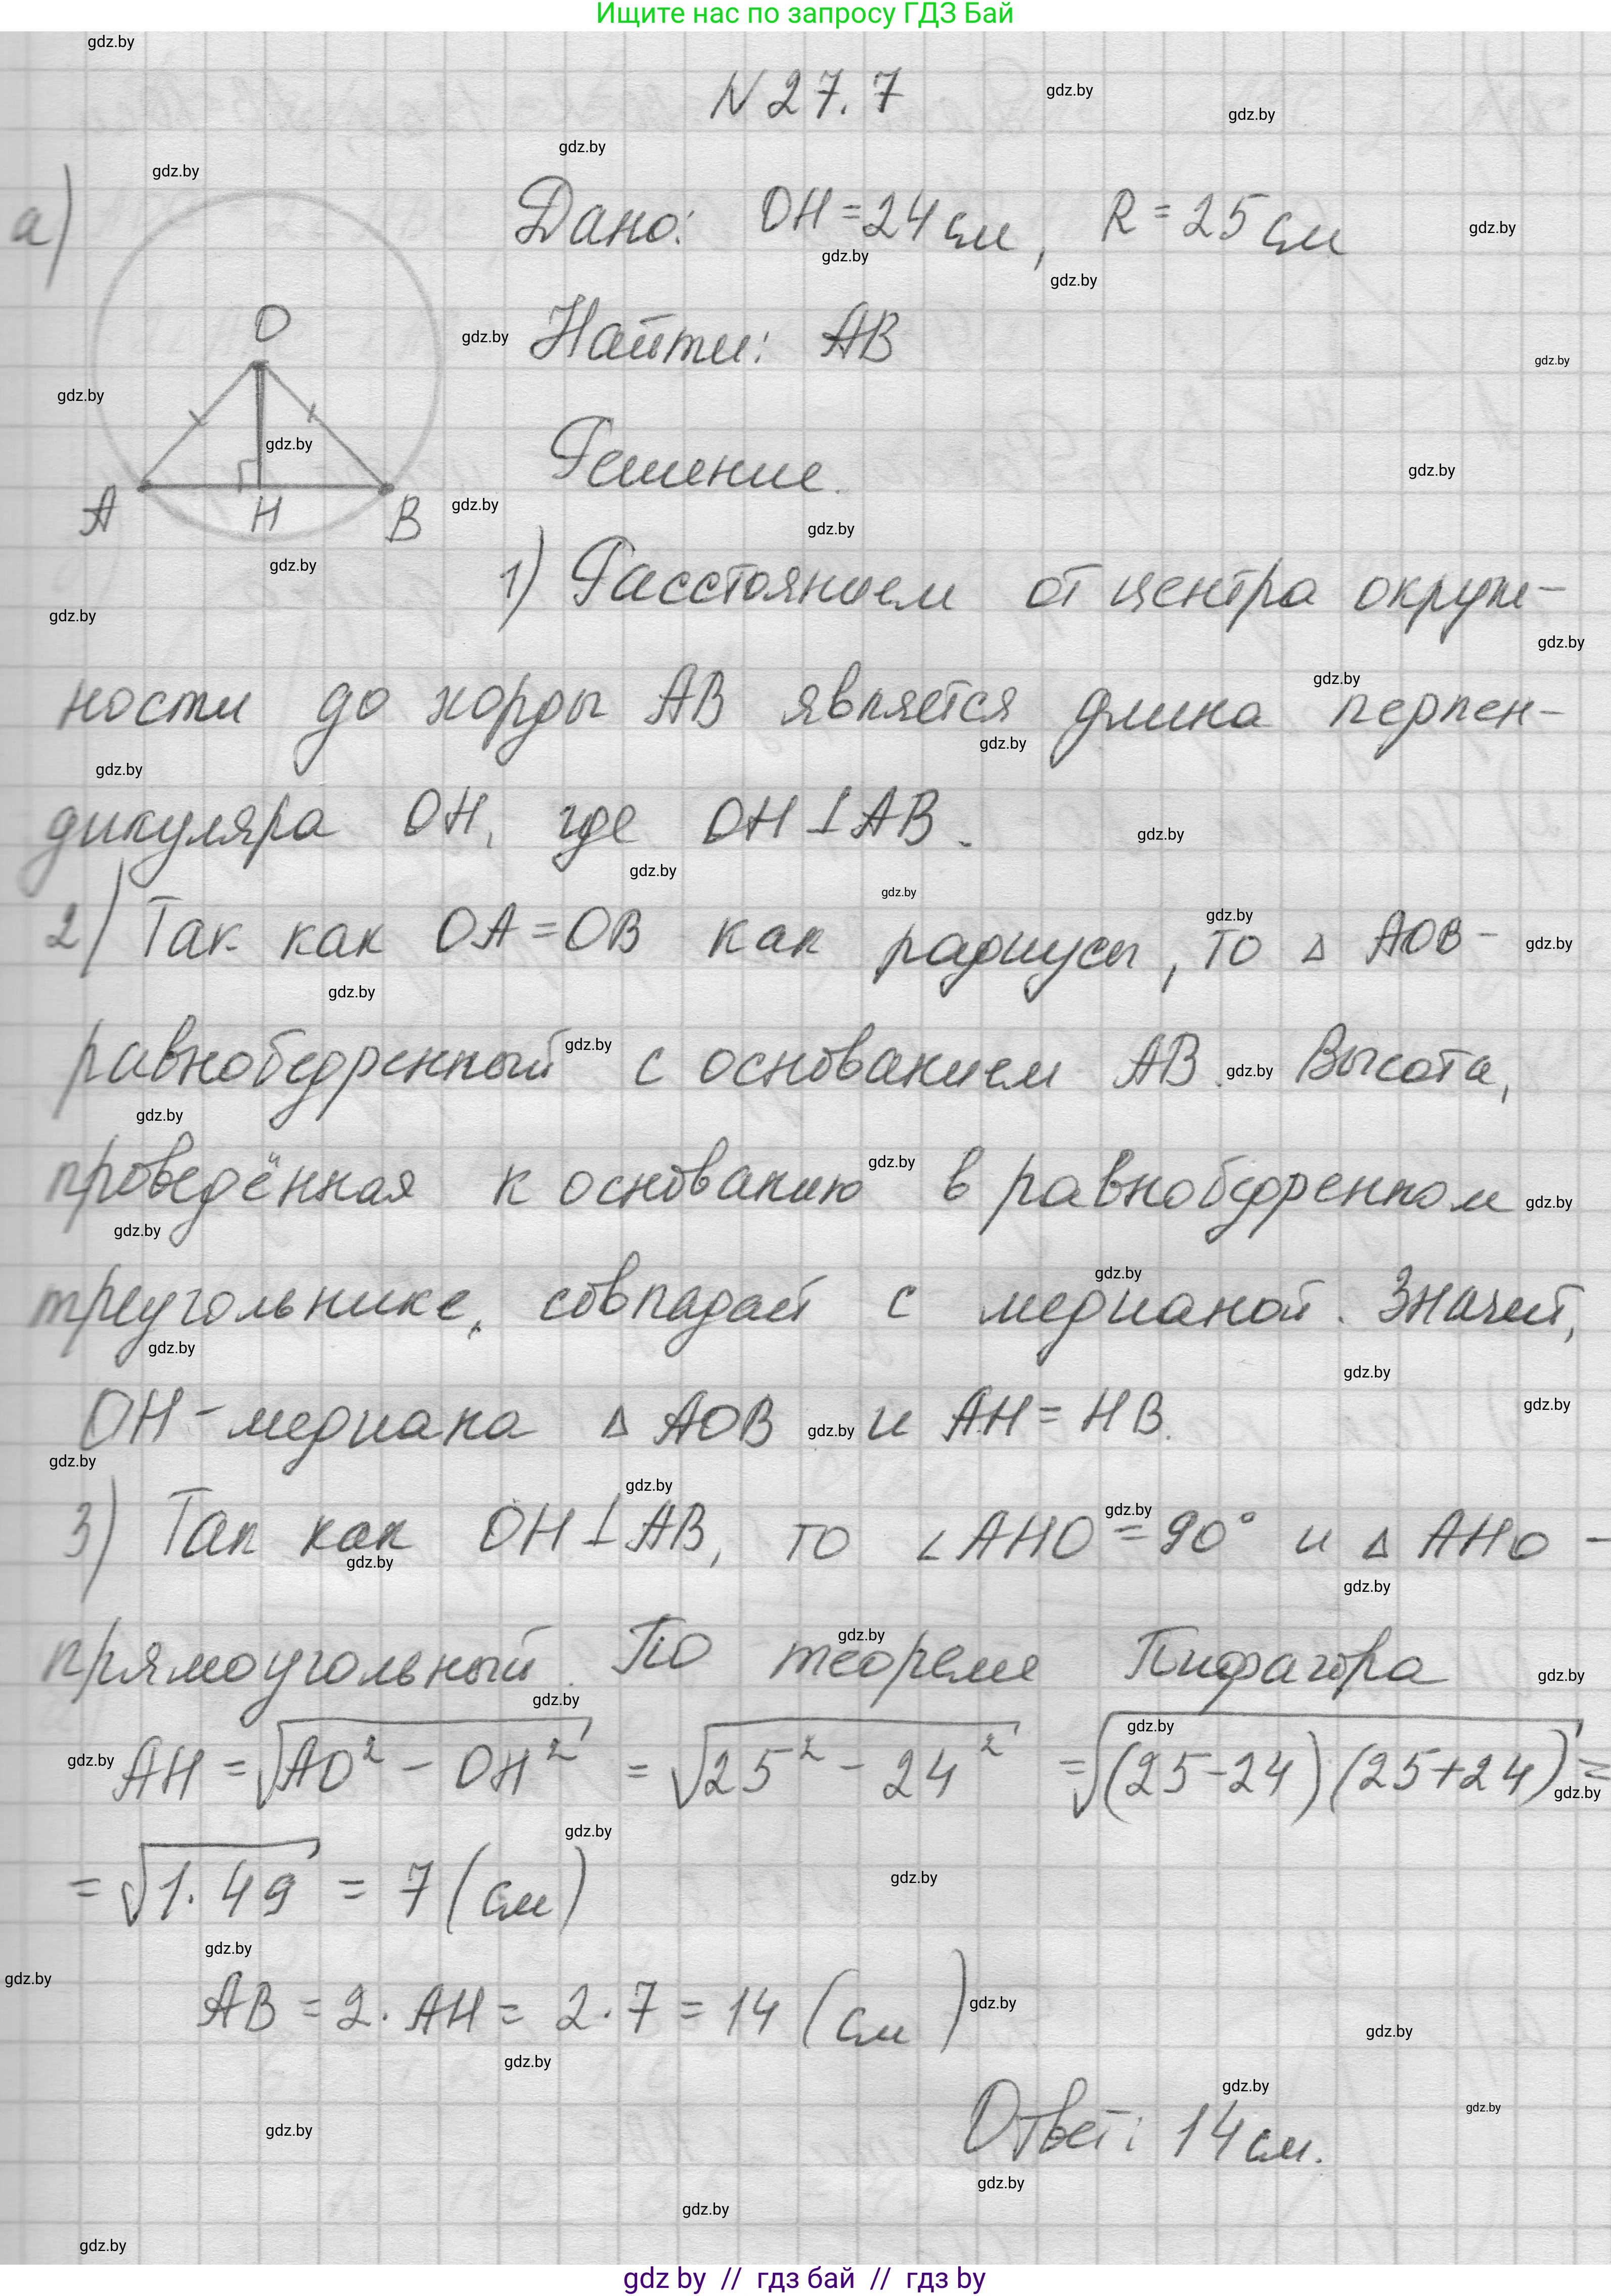 Ищите нас по запросу ГДЗ Бай
N 27.7
а)
Дано: OH = 24 см, R = 25 см
Найти: AB
O
A H B
Решение.
1) Расстоянием от центра окруж-
ности до хорды AB является длина перпен-
дикуляра OH, где OH ⊥ AB.
2) Так как OA = OB как радиусы, то △ AOB -
равнобедренный с основанием AB. Высота,
проведённая к основанию в равнобедренном
треугольнике, совпадает с медианой. Значит,
OH - медиана △ AOB и AH = HB.
3) Так как OH ⊥ AB, то ∠AHO = 90° и △ AHO -
прямоугольный. По теореме Пифагора
AH = √(AO² - OH²) = √(25² - 24²) = √((25-24)(25+24)) =
= √(1·49) = 7 (см)
AB = 2 · AH = 2 · 7 = 14 (см)
Ответ: 14 см.
gdz by // гдз бай // гдз by